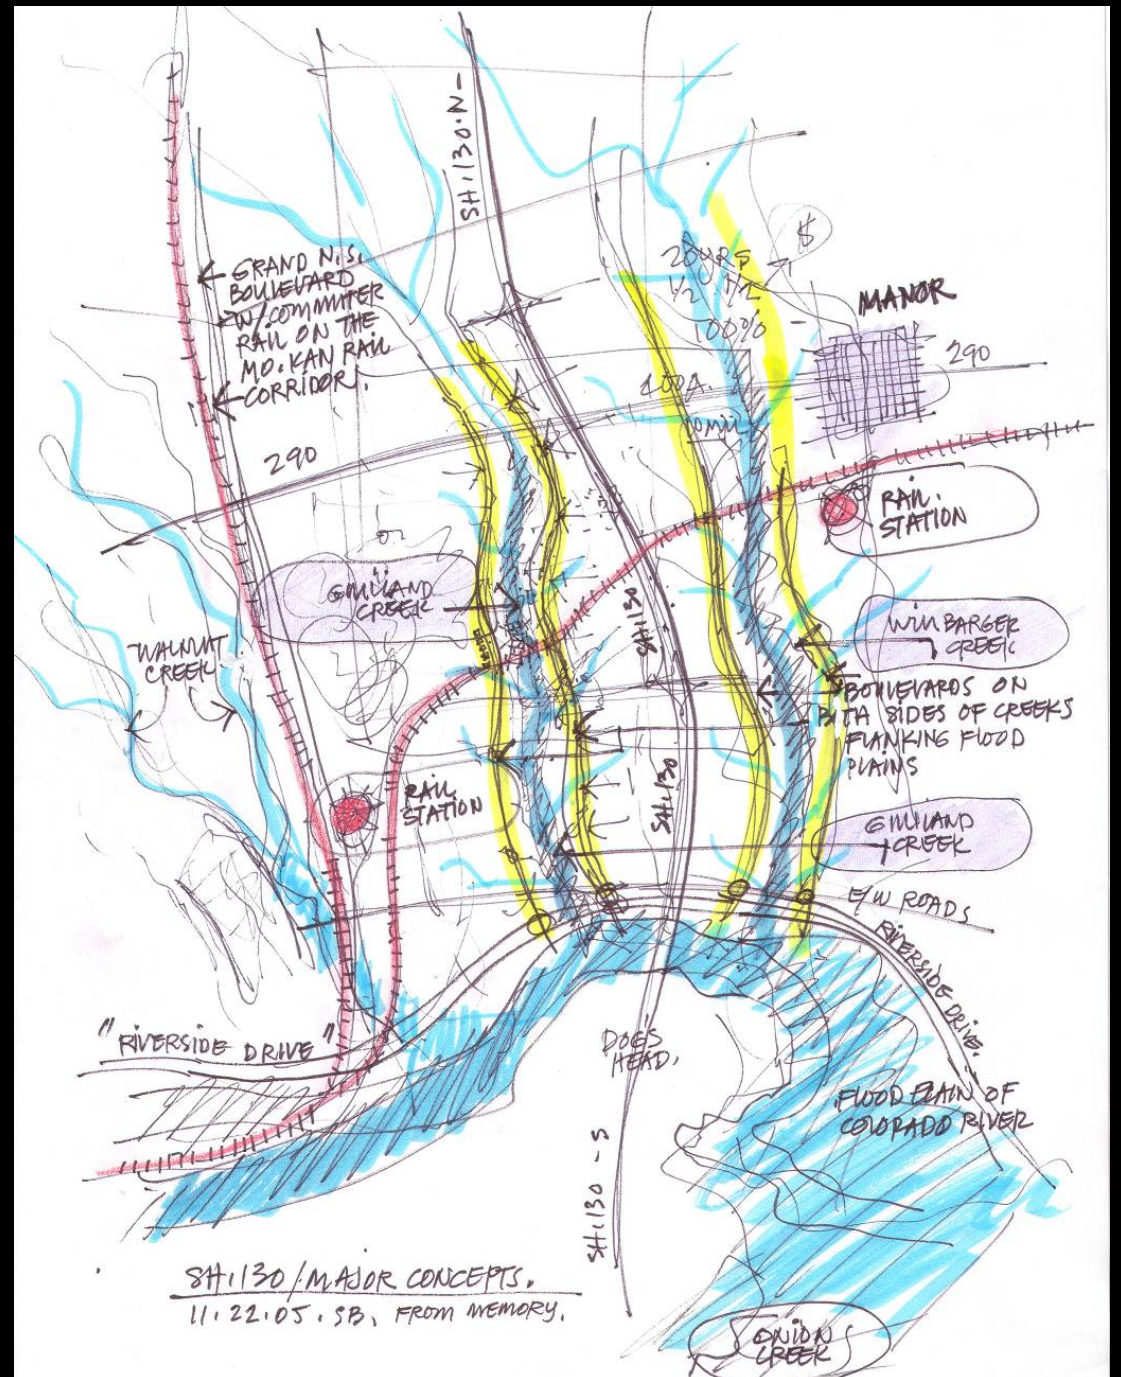 SH.130.N-
GRAND N.S.
BOULEVARD
W/COMMUTER
RAIL ON THE
MO.KAN RAIL
CORRIDOR.
20 YRS
1/2 1/2
100%
$
MANOR
290
290
RAIL
STATION
GILILAND
CREEK
WALNUT
CREEK
SH.130
WILBARGER
CREEK
BOULEVARDS ON
BOTH SIDES OF CREEKS
FLANKING FLOOD
PLAINS
RAIL
STATION
SH.130
GILILAND
CREEK
E/W ROADS
RIVERSIDE DRIVE.
"RIVERSIDE DRIVE"
DOG'S
HEAD.
FLOOD PLAIN OF
COLORADO RIVER
SH.130-S
SH.130/MAJOR CONCEPTS.
11.22.05. SB. FROM MEMORY.
ONION
CREEK